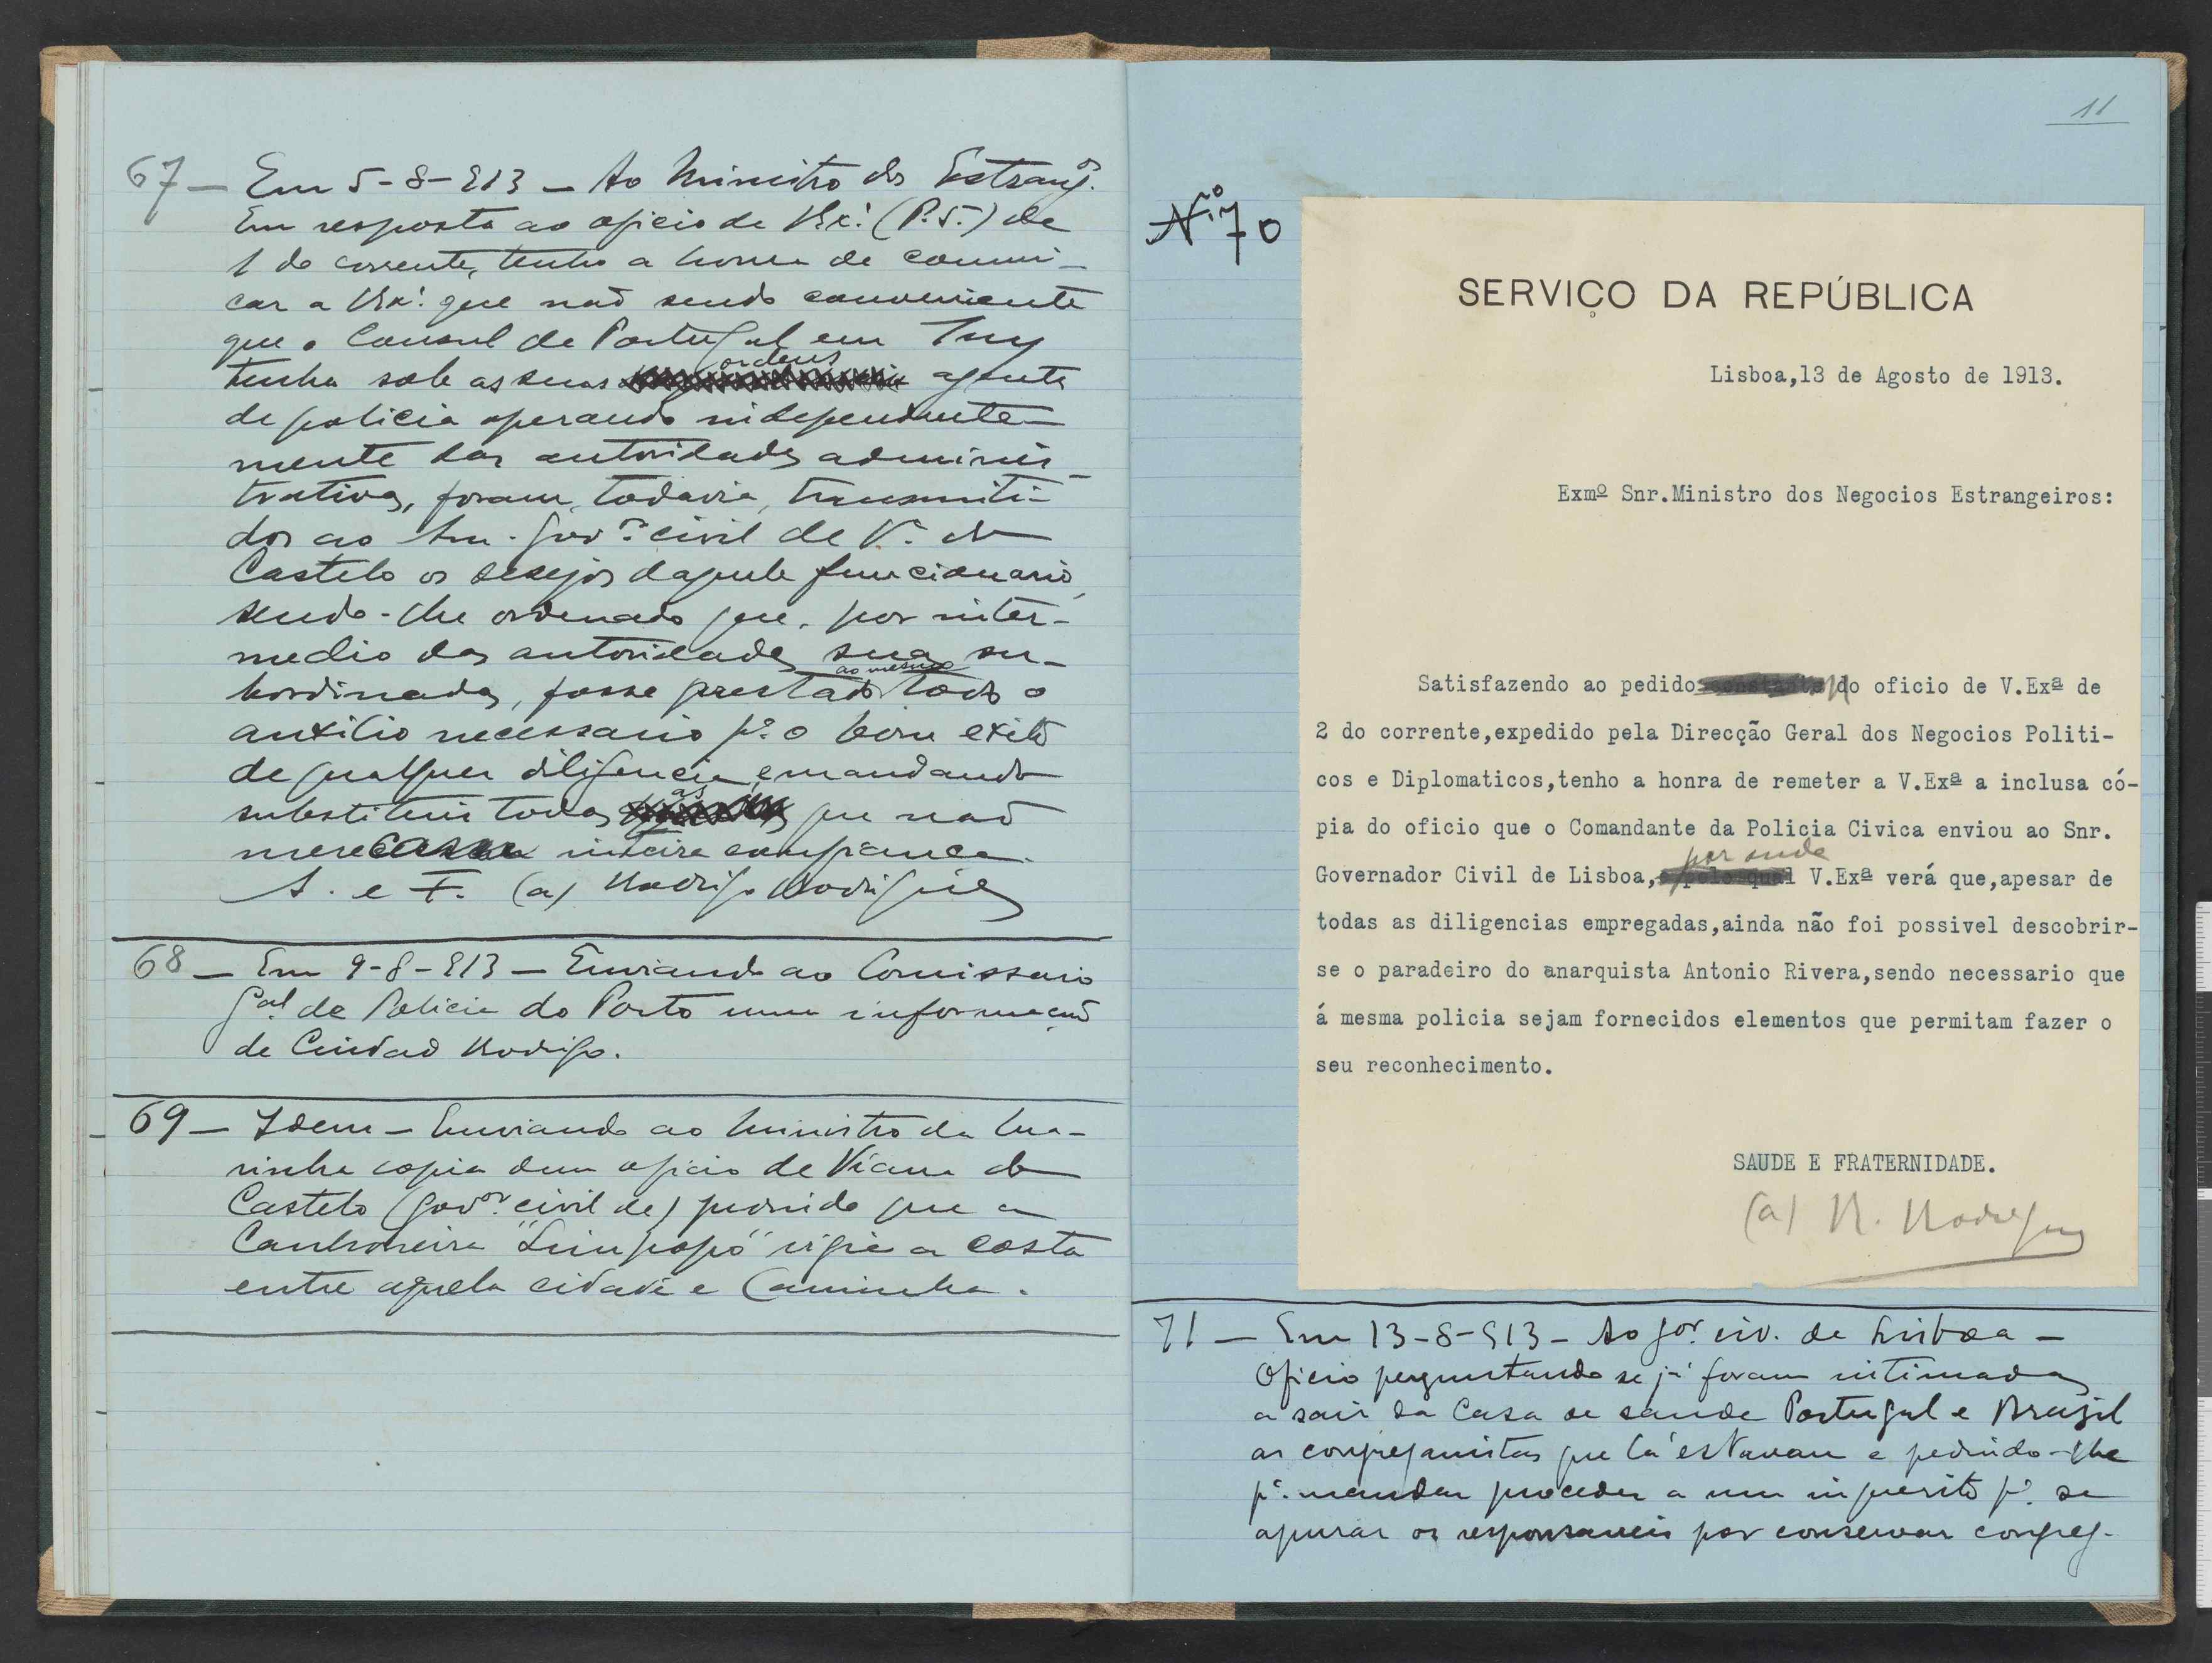 67 — Em 5-8-913 — Ao Ministro dos Estrang.os
Em resposta ao oficio de V.Ex.ª (P.S.) de
1 do corrente, tenho a honra de comuni-
car a V.Ex.ª que não sendo conveniente
que o Consul de Portugal em Tuy
tenha sob as suas ordens agente
de policia operando independente-
mente das autoridades adminis-
trativas, foram, todavia, transmiti-
dos ao Snr. Gov.or civil de V.ª do
Castelo os desejos daquele funcionario,
sendo-lhe ordenado que, por inter-
medio das autoridades suas su-
bordinadas, fosse prestado ao mesmo todo o
auxilio necessario p.ª o bom exito
de qualquer diligencia, e mandando
substituir todas as que não
mereçam inteira confiança.
S. e F. (a) Rodrigo Rodrigues
68 — Em 9-8-913 — Enviando ao Comissario
G.al de Policia do Porto uma informação
de Ciudad Rodrigo.
69 — Idem — Enviando ao Ministro da Ma-
rinha copia dum oficio de Viana do
Castelo (Gov.or civil de) pedindo que a
Canhoneira "Limpopó" vigie a costa
entre aquela cidade e Caminha.
11
Nº 70
SERVIÇO DA REPÚBLICA
Lisboa,13 de Agosto de 1913.
Exmº Snr.Ministro dos Negocios Estrangeiros:
Satisfazendo ao pedido do oficio de V.Exª de
2 do corrente,expedido pela Direcção Geral dos Negocios Politi-
cos e Diplomaticos,tenho a honra de remeter a V.Exª a inclusa có-
pia do oficio que o Comandante da Policia Civica enviou ao Snr.
Governador Civil de Lisboa, por onde V.Exª verá que,apesar de
todas as diligencias empregadas,ainda não foi possivel descobrir-
se o paradeiro do anarquista Antonio Rivera,sendo necessario que
á mesma policia sejam fornecidos elementos que permitam fazer o
seu reconhecimento.
SAUDE E FRATERNIDADE.
(a) R. Rodrigues
71 — Em 13-8-913 — Ao G.or civ. de Lisboa —
Oficio perguntando se já foram intimadas
a sair da Casa de saude Portugal e Brazil
as congreganistas que lá estavam e pedindo-lhe
p.ª mandar proceder a um inquerito p.ª se
apurar os responsaveis por conservar congreg.